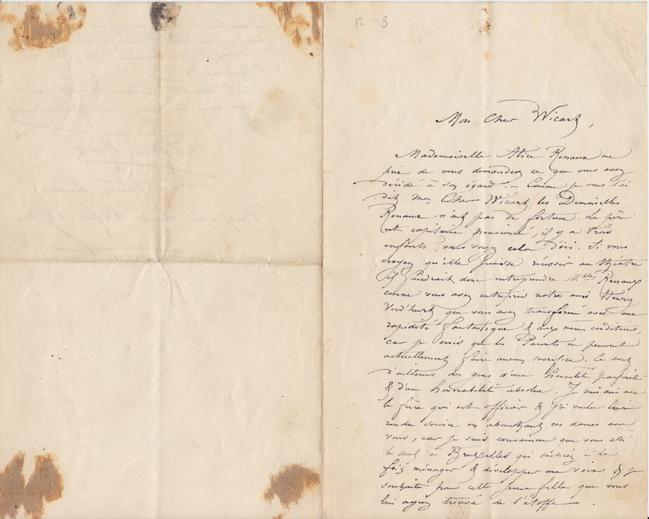 12 98
Mon Cher Wicart,
Mademoiselle Alice Renaux me
prie de vous demander ce que vous avez
décidé à son égard. Comme je vous l'ai
dit Mon Cher Wicart les Demoiselles
Renaux n'ont pas de fortune. Le père
est capitaine pensionné, il y a trois
enfants, vous voyez cela d'ici. Si vous
croyez qu'elle puisse réussir au théâtre
il faudrait donc entreprendre Melle Renaux
comme vous avez entrepris notre ami Henry
que vous avez transformé avec une
rapidité fantastique & aux mêmes conditions,
car je crois que les Parents ne peuvent
actuellement faire aucun sacrifice. Ce sont
d'ailleurs des gens d'une honnêteté parfaite
& d'une honorabilité absolue. Je suis ami avec
le frère qui est officier & j'ai voulu leur
rendre service en abouchant ces dames avec
vous, car je suis convaincu que vous êtes
le seul à Bruxelles qui sachiez à la
fois ménager & développer une voix & je
souhaite pour cette jeune fille que vous
lui ayiez trouvé de l'étoffe.